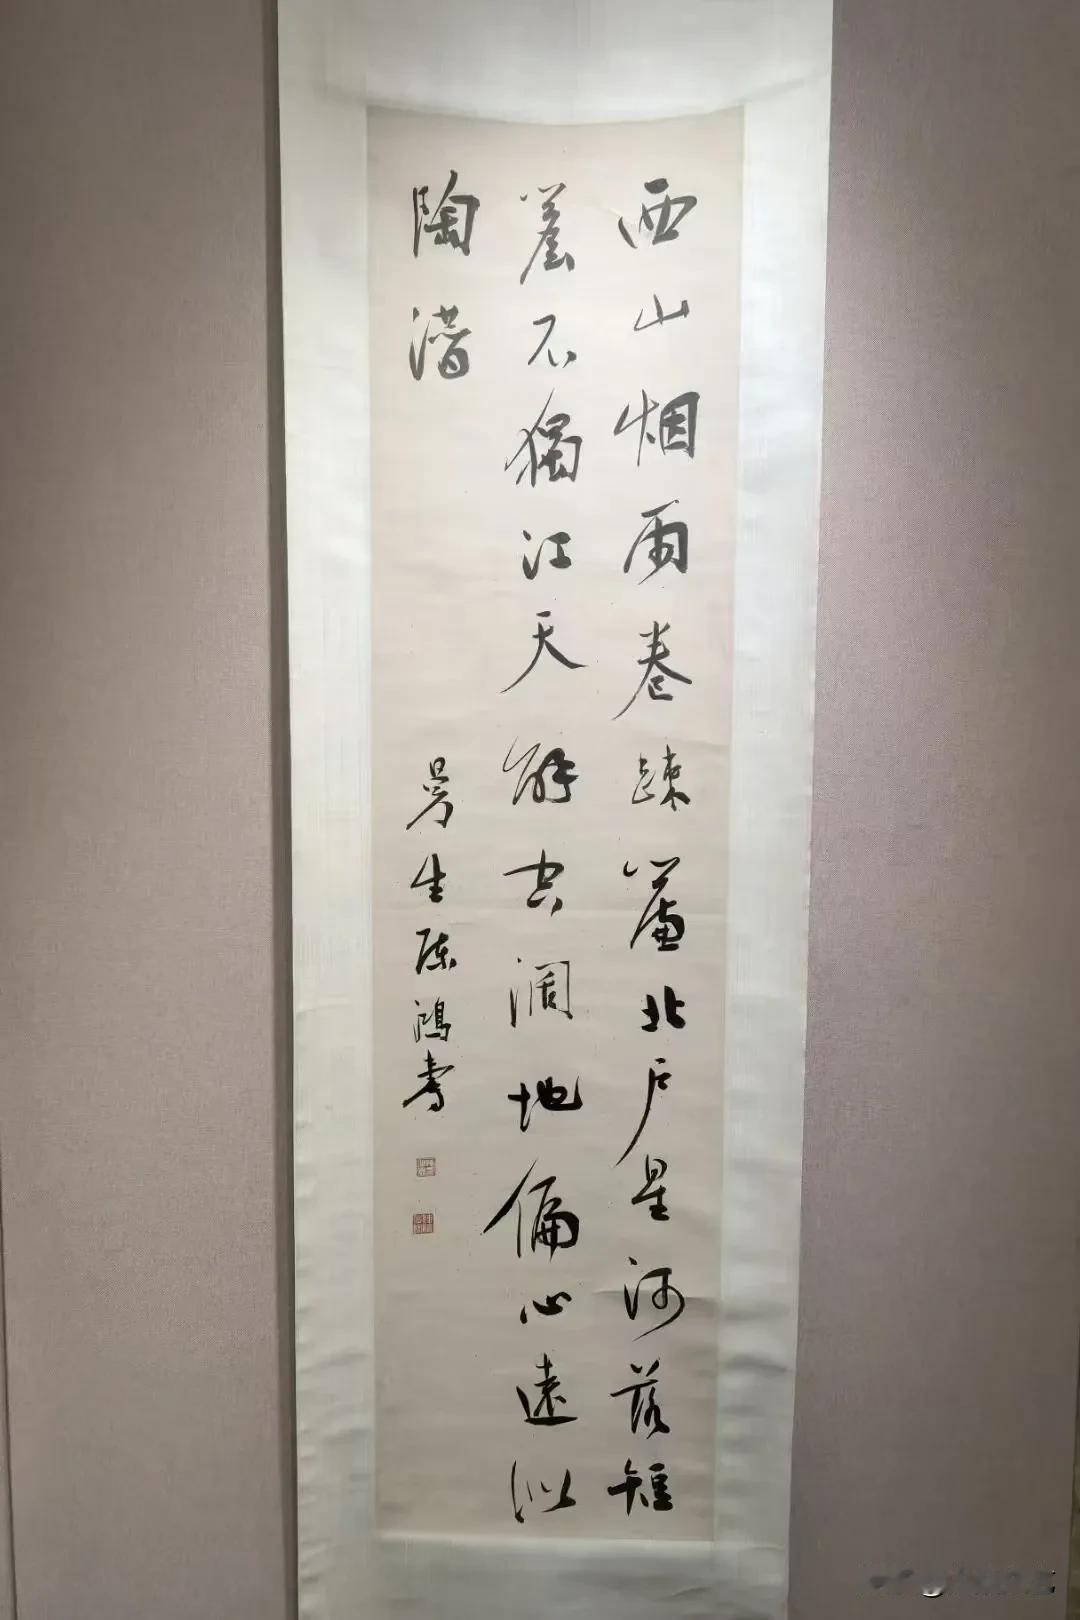 西山烟雨卷踈簾北户星河落短
簷不獨江天解空闊地偏心遠似
陶潜
曼生陳鴻壽